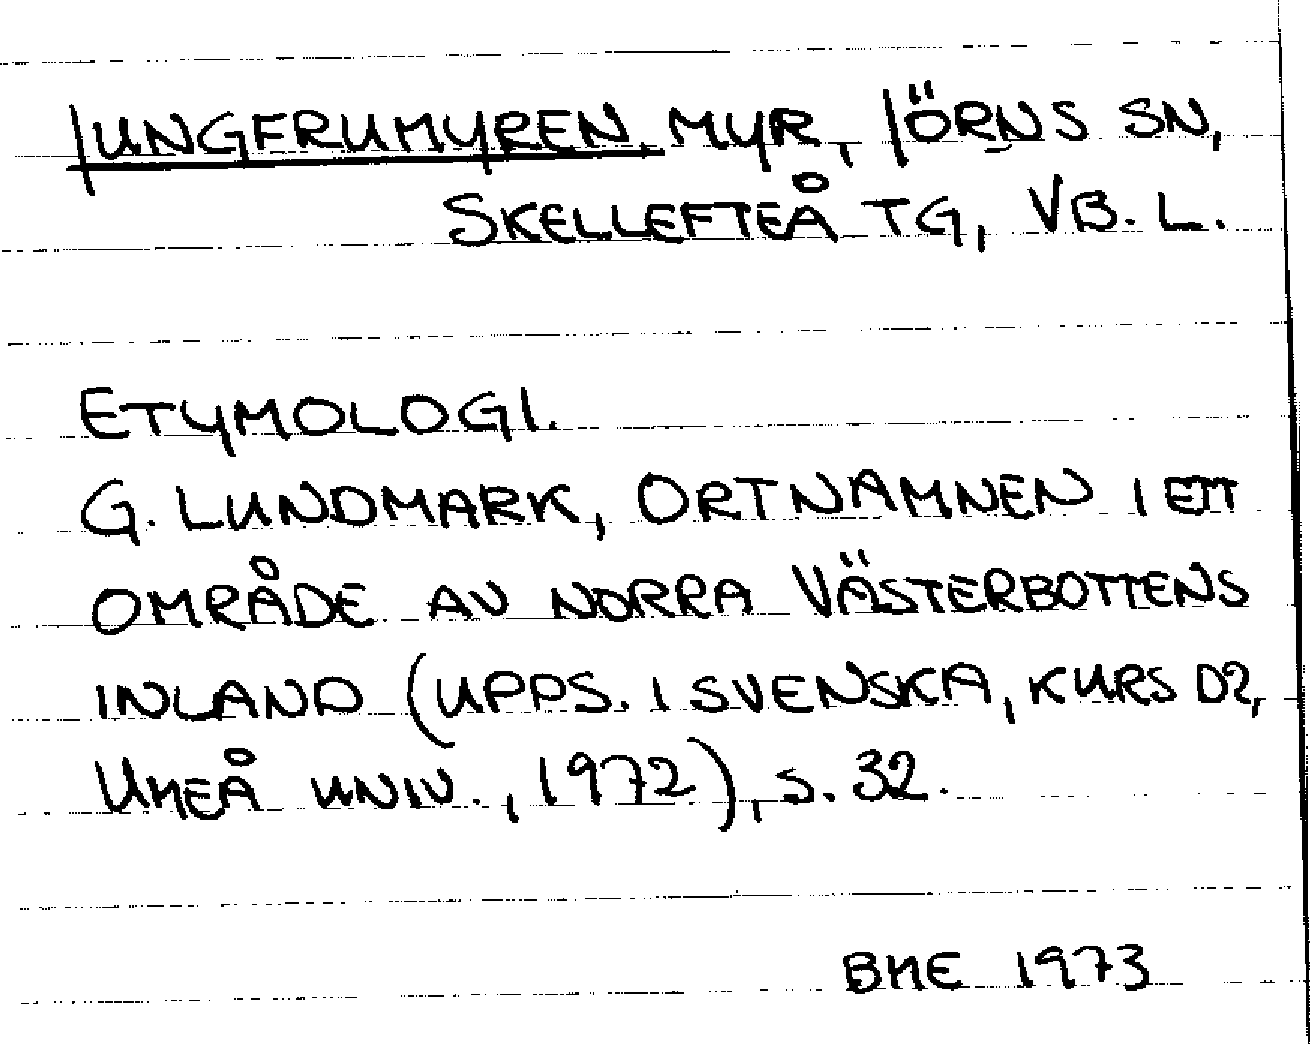 JUNGFRUMYREN, MYR, JÖRNS SN,
SKELLEFTEÅ TG, VB. L.
ETYMOLOGI.
G. LUNDMARK, ORTNAMNEN I ETT
OMRÅDE AV NORRA VÄSTERBOTTENS
INLAND (UPPS. I SVENSKA, KURS D2,
UMEÅ UNIV., 1972), S. 32.
BME 1973